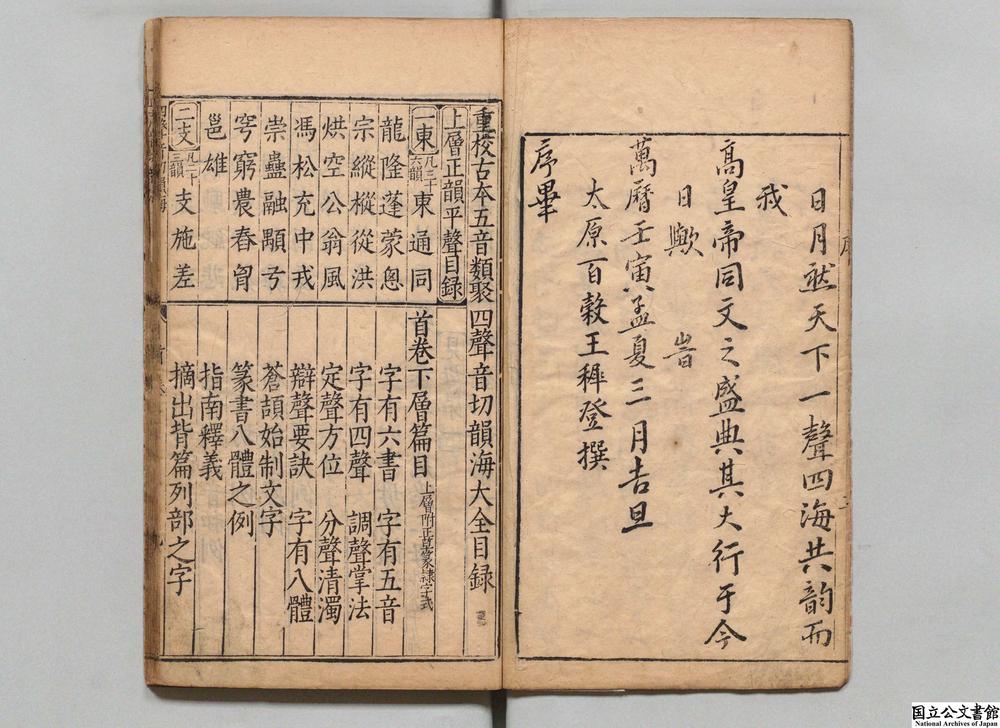 日月然天下一聲四海共韵而
我
高皇帝同文之盛典其大行于今
日歟 旹
萬曆壬寅孟夏三月吉旦
太原百榖王穉登撰
序畢
重校古本五音類聚四聲音切韻海大全目録
上層正韻平聲目錄
一東 凡三十六韻 東通同
龍隆蓬蒙悤
宗縱樅從洪
烘空公翁風
馮松充中戎
崇蟲融顒兮
穹窮農舂胷
邕雄
二支 支施差
首卷下層篇目 上層附正草篆隷字式
字有六書 字有五音
字有四聲 調聲掌法
定聲方位 分聲清濁
辯聲要訣 字有八體
蒼頡始制文字
篆書八體之例
指南釋義
摘出背篇列部之字
国立公文書館
National Archives of Japan